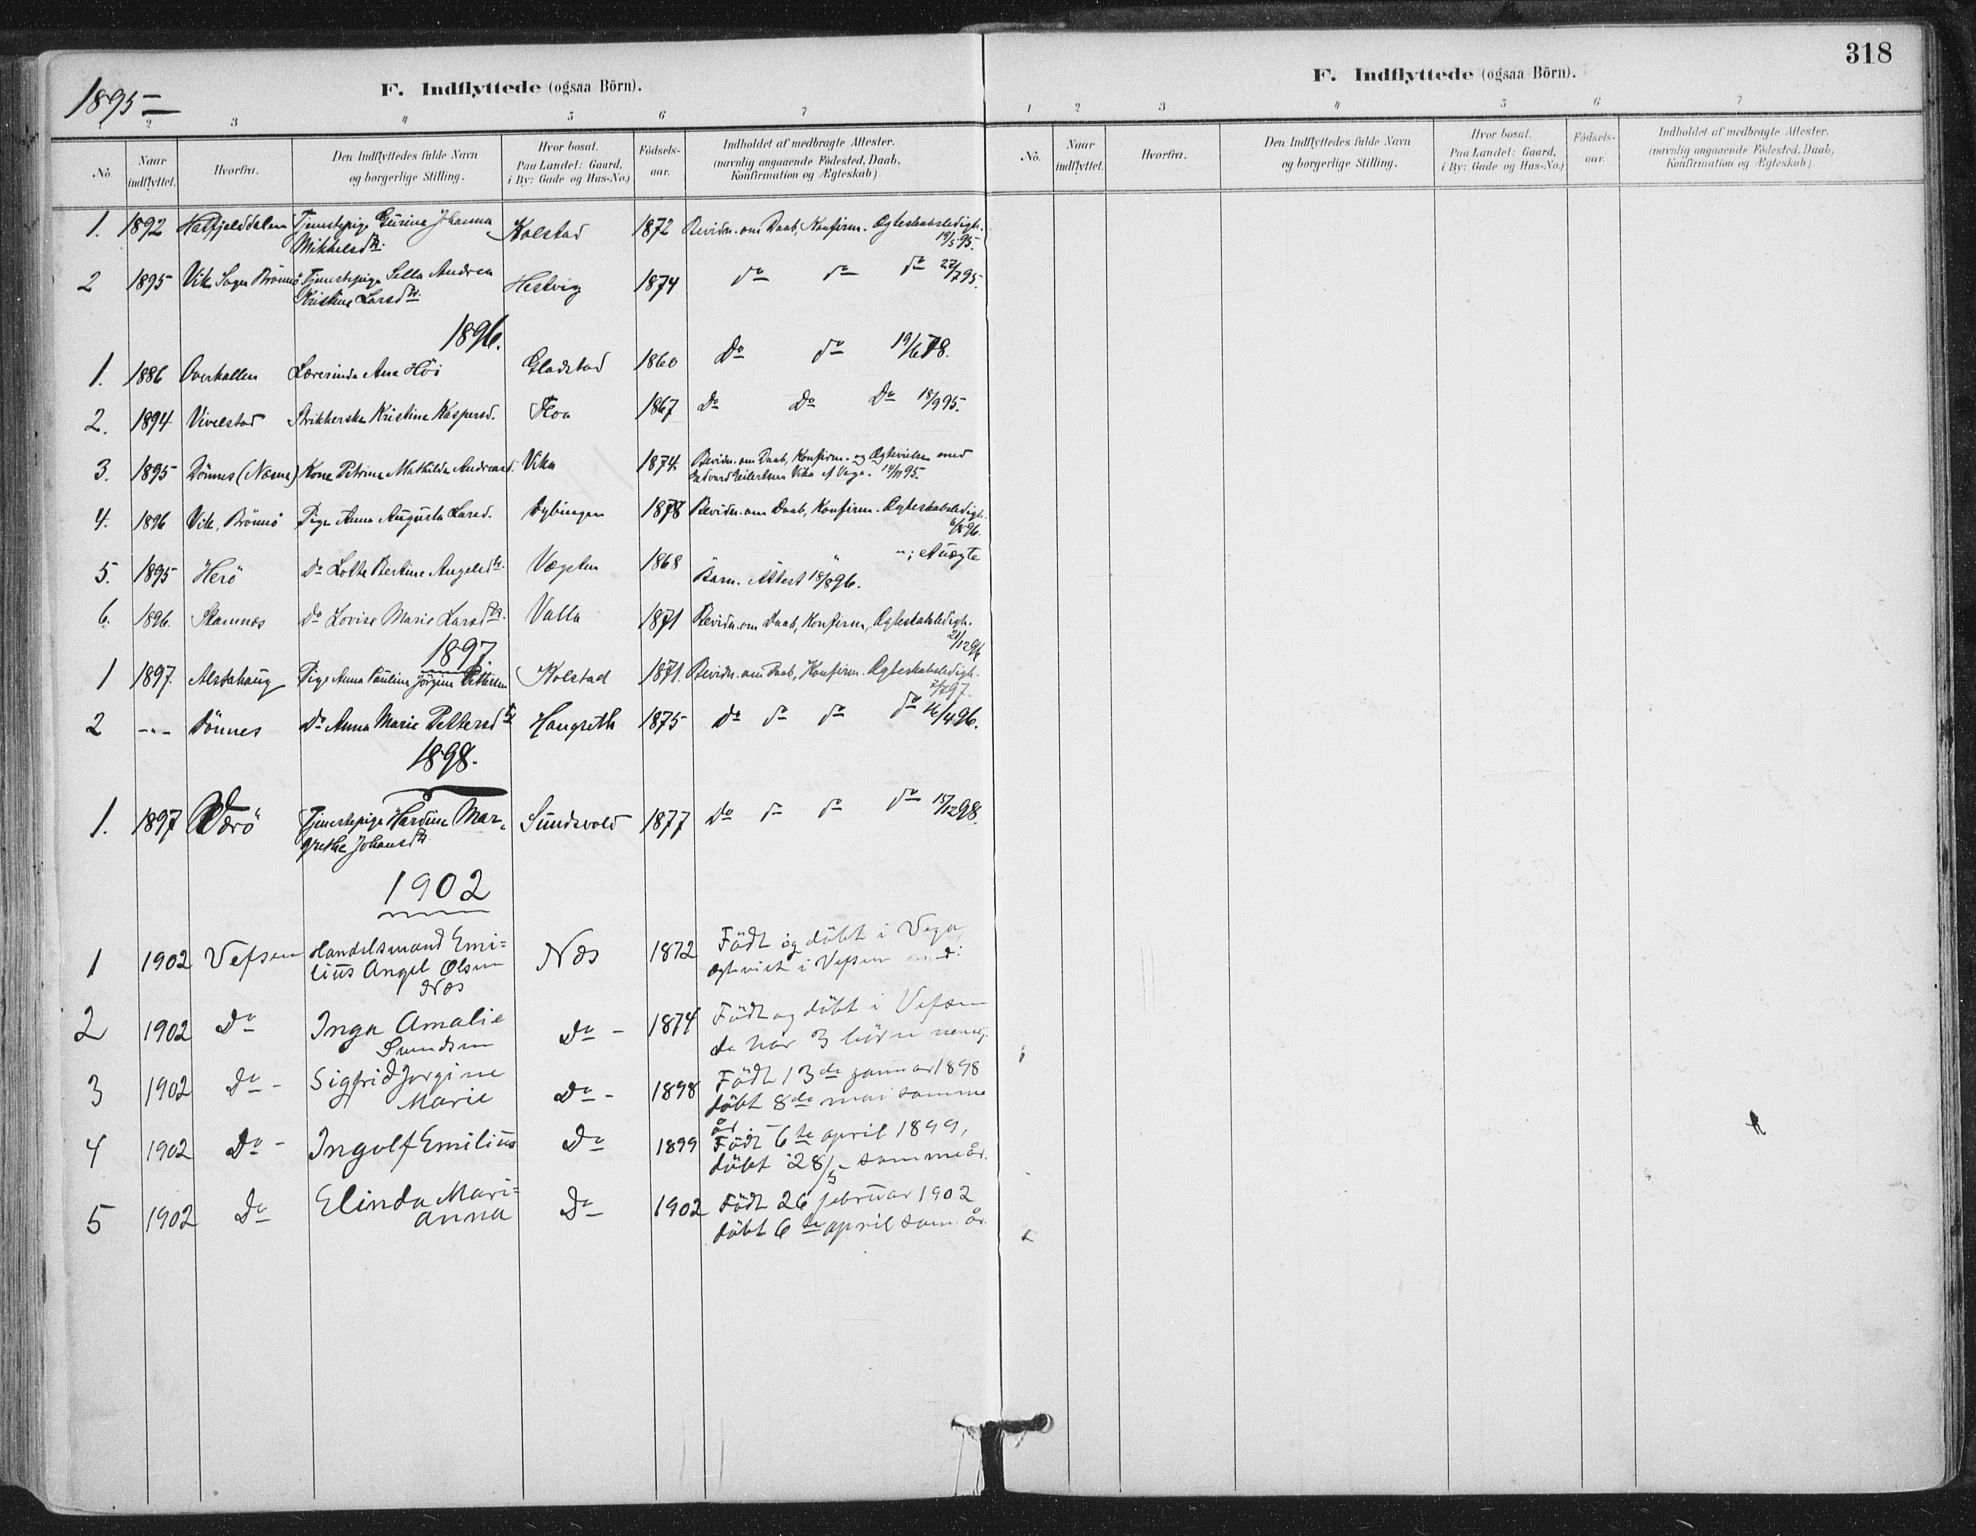 318
1895
F. Indflyttede (ogsaa Börn).
F. Indflyttede (ogsaa Börn).
2 3 4 5 6 7
1 2 3 4 5 6 7
No.
Naar indflyttet.
Hvorfra.
Den Indflyttedes fulde Navn og borgerlige Stilling.
Hvor bosat. Paa Landet: Gaard, i By: Gade og Hus-No.)
Födsels-aar.
Indholdet af medbragte Attester. (navnlig angaaende Födested, Daab, Konfirmation og Ægteskab).
No.
Naar indflyttet.
Hvorfra.
Den Indflyttedes fulde Navn og borgerlige Stilling.
Hvor bosat. Paa Landet: Gaard, i By: Gade og Hus-No.)
Födsels-aar.
Indholdet af medbragte Attester. (navnlig angaaende Födested, Daab, Konfirmation og Ægteskab).
1. 1892 Hatfjelddalen Tjenestepige Gurine Johanna Kolstad 1872 Bevidn. om Daab, Konfirm. Ægteskabsledigh.
Mikkelsdtr. 19/5 95.
2 1895 Vik Sogn Brönnö Tjenestepige Sella Andrea Hestvig 1874 do do do 22/7 95.
Kristine Larsdtr.
1896.
1. 1886 Overhallen Lærerinde Ane Höi Gladstad 1860 Do do 19/6 78.
2. 1894 Vivelstad Strikkerske Kristine Kaspersd. Floa 1867 Do Do Do 18/9 95.
3. 1895 Dönnes (Næsne) Kone Petrine Mathilde Andreasd. Vika 1874 Bevidn. om Daab, Konfirm. og Ægtevielse med
Edvard Eilertsen Vika af Vega. 14/11 95.
4. 1896 Vik. Brönnö Pige Anna Augusta Larsd. Dybingen 1878 Bevidn. om Daab, Konfirm. Ægteskabsledigh.
6/8 96.
5. 1895 Herö Do Lotte Bertine Angelsdtr. Vægsten 1868 " " ; et uægte
Barn. Attest 18/8 96.
6. 1896. Stamnes Do Lovise Marie Larsdtr. Valla 1871 Bevidn. om Daab, Konfirm, Ægteskabsledigh.
21/12 96
1897
1 1897. Alstahaug Pige Anna Pauline Jörgine Pettersen Kolstad 1871. Bevidn. om Daab, Konfirm. Ægteskabsledigh.
2/7 97.
2 -"- Dönnes Do Anna Marie Pettersdtr Haugreth 1875 do do do do 16/4 96.
1898.
1. 1897 Værö Tjenestepige Hardine Mar- Sundsvold 1877 do do do do 15/12 98.
grethe Johansdtr.
1902
1 1902 Vefsen Handelsmand Emi= Næs 1872 Födt og döbt i Vega,
lius Angel Olsen ægteviet i Vefsen med:
Næs
2 1902 Do Inga Amalie Do - 1874 Födt og döbt i Vefsen
Svendsen de har 3 börn nemlig:
3 1902 Do - Sigfrid Jorgine Do - 1898 Födt 13de januar 1898
Marie döbt 8de mai samme
år. -
4 1902 Do - Ingolf Emilius Do 1899 Födt 6te april 1899,
döbt 28/5 samme år.
5 1902 Do Elinda Mari= Do 1902 Födt 26 februar 1902
anna döbt 6te april sam. år.